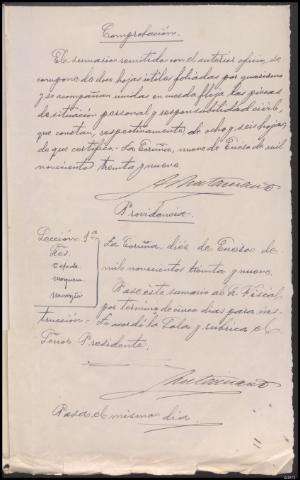 Comprobación.
El sumario remitido con el anterior oficio, se
compone de dos hojas útiles foliadas por
y se acompañan unidas en cuerda floja las piezas
de situación personal y responsabilidad civil,
que constan, respectivamente, de ocho y seis hojas,
de que certifico.- La Coruña, nueve de Enero de mil
novecientos treinta y nueve.
Providencia
Sección 1ª
Sres.
La Coruña, diez de Enero de
mil novecientos treinta y nueve.
Pase este sumario al Sr. Fiscal
por término de cinco días para ins-
trucción.- Lo acordó la Sala y rubrica el
Señor Presidente.
Pasa el mismo día.